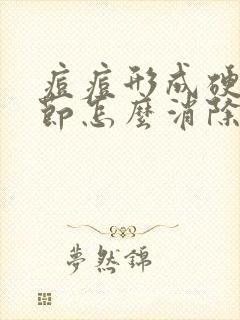 痘痘形成硬
節怎麼消除
夢然錦